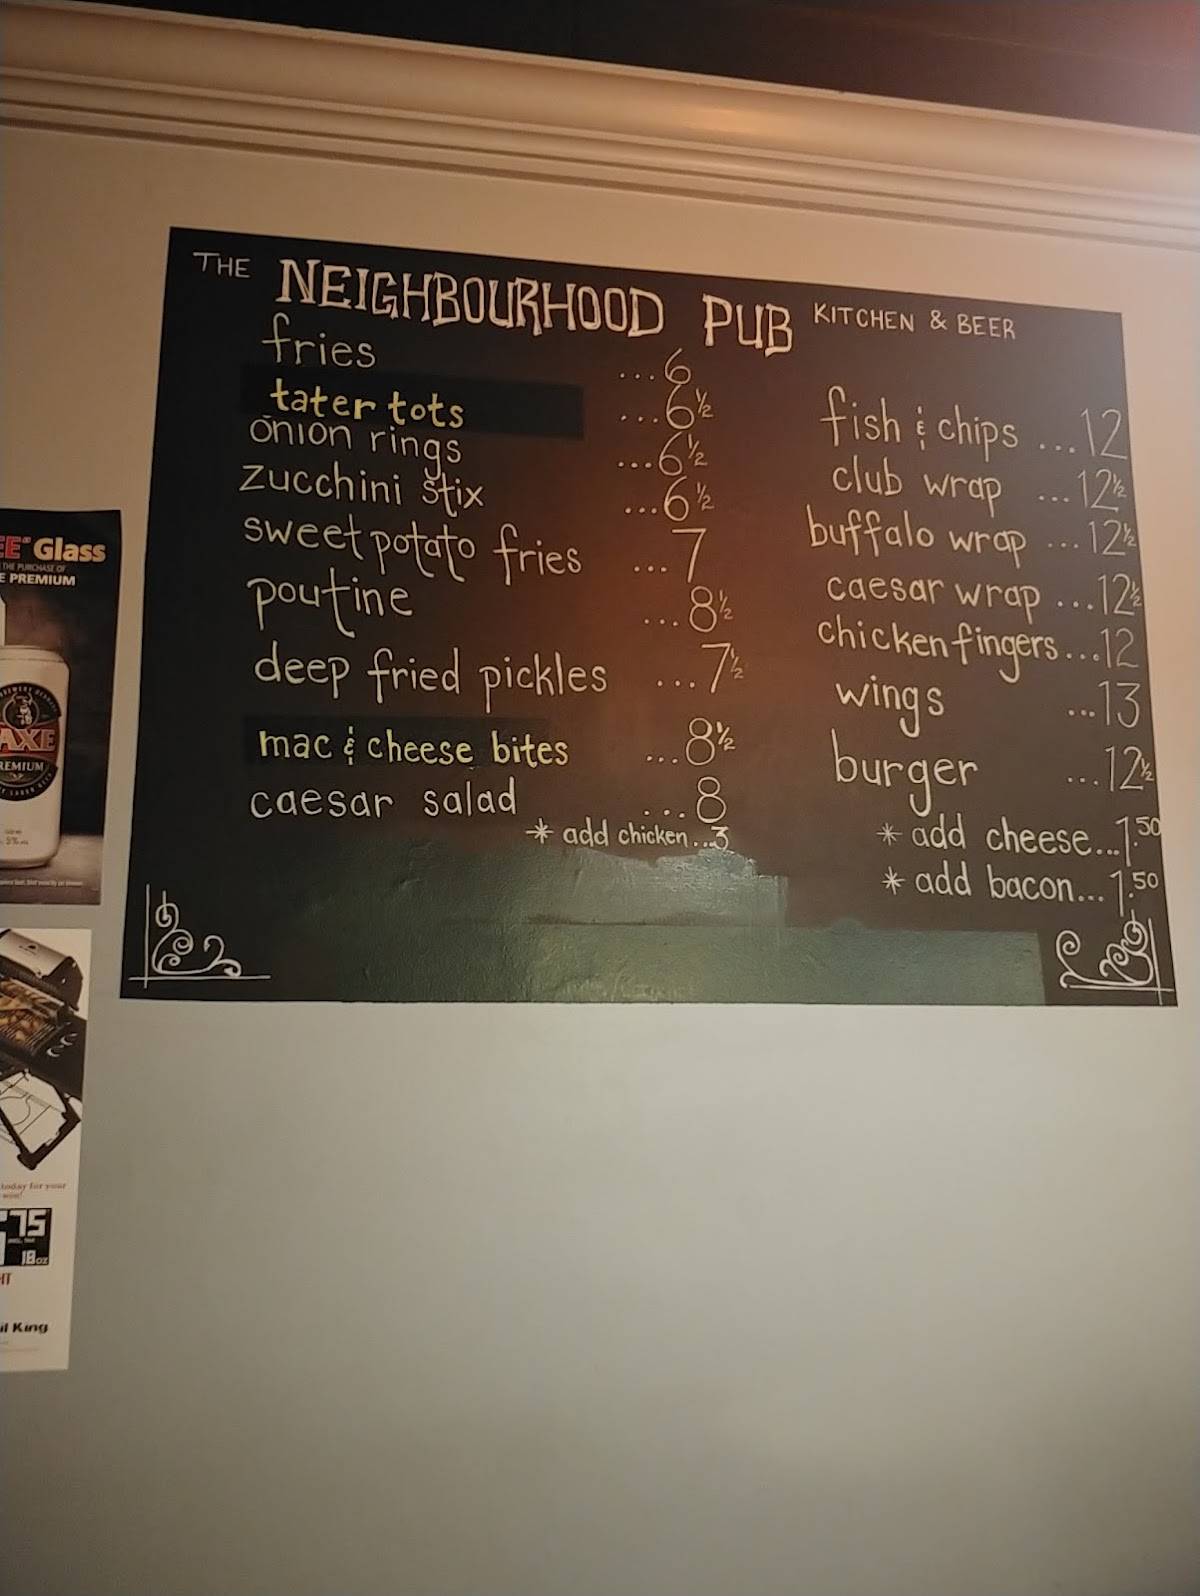 THE NEIGHBOURHOOD PUB KITCHEN & BEER
fries ...6
tater tots ...6½
onion rings ...6½
zucchini stix ...6½
sweet potato fries ...7
poutine ...8½
deep fried pickles ...7½
mac & cheese bites ...8½
caesar salad ...8
* add chicken...3
fish & chips ...12
club wrap ...12½
buffalo wrap ...12½
caesar wrap ...12½
chicken fingers...12
wings ...13
burger ...12½
* add cheese...1.50
* add bacon...1.50
Glass
THE PURCHASE OF
E PREMIUM
AXE
PREMIUM
5%
today for your
win!
75
18oz
King